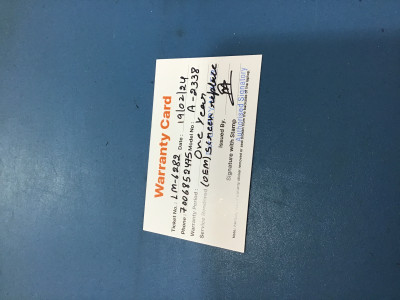 Warranty Card
Ticket No.: LM-6282 Date: 19/02/24
Phone: 7006852475 Model No: A-2338
Warranty Period: One Year
Service Rendered (OEM) screen replace
Issued By.
Signature with Stamp
Authorised Signatory